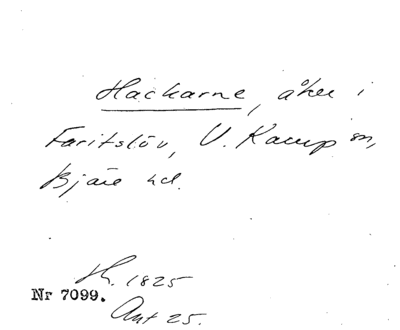 Hackarne, åker i
Faritslöv, V. Karup sn,
Bjäre hd.
Sk. 1825
Nr 7099.
Ant 25.